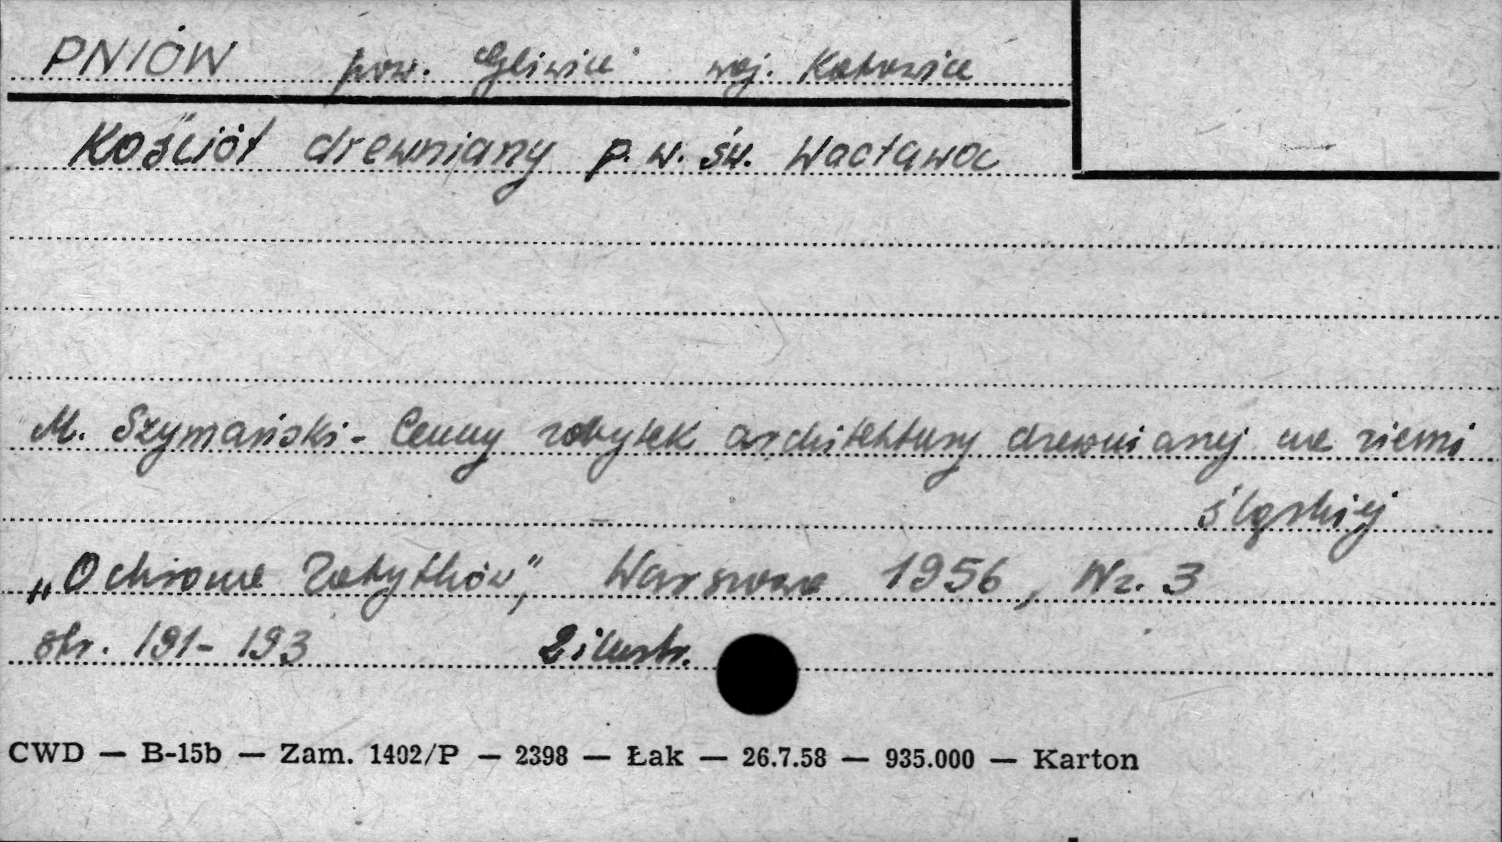 PNIÓW pow. Gliwice woj. Katowice
Kościół drewniany p.w. św. Wacława
M. Szymański - Cenny zabytek architektury drewnianej na ziemi
śląskiej
„Ochrona Zabytków", Warszawa 1956, Nr. 3
str. 191-193 2 ilustr.
CWD — B-15b — Zam. 1402/P — 2398 — Łak — 26.7.58 — 935.000 — Karton